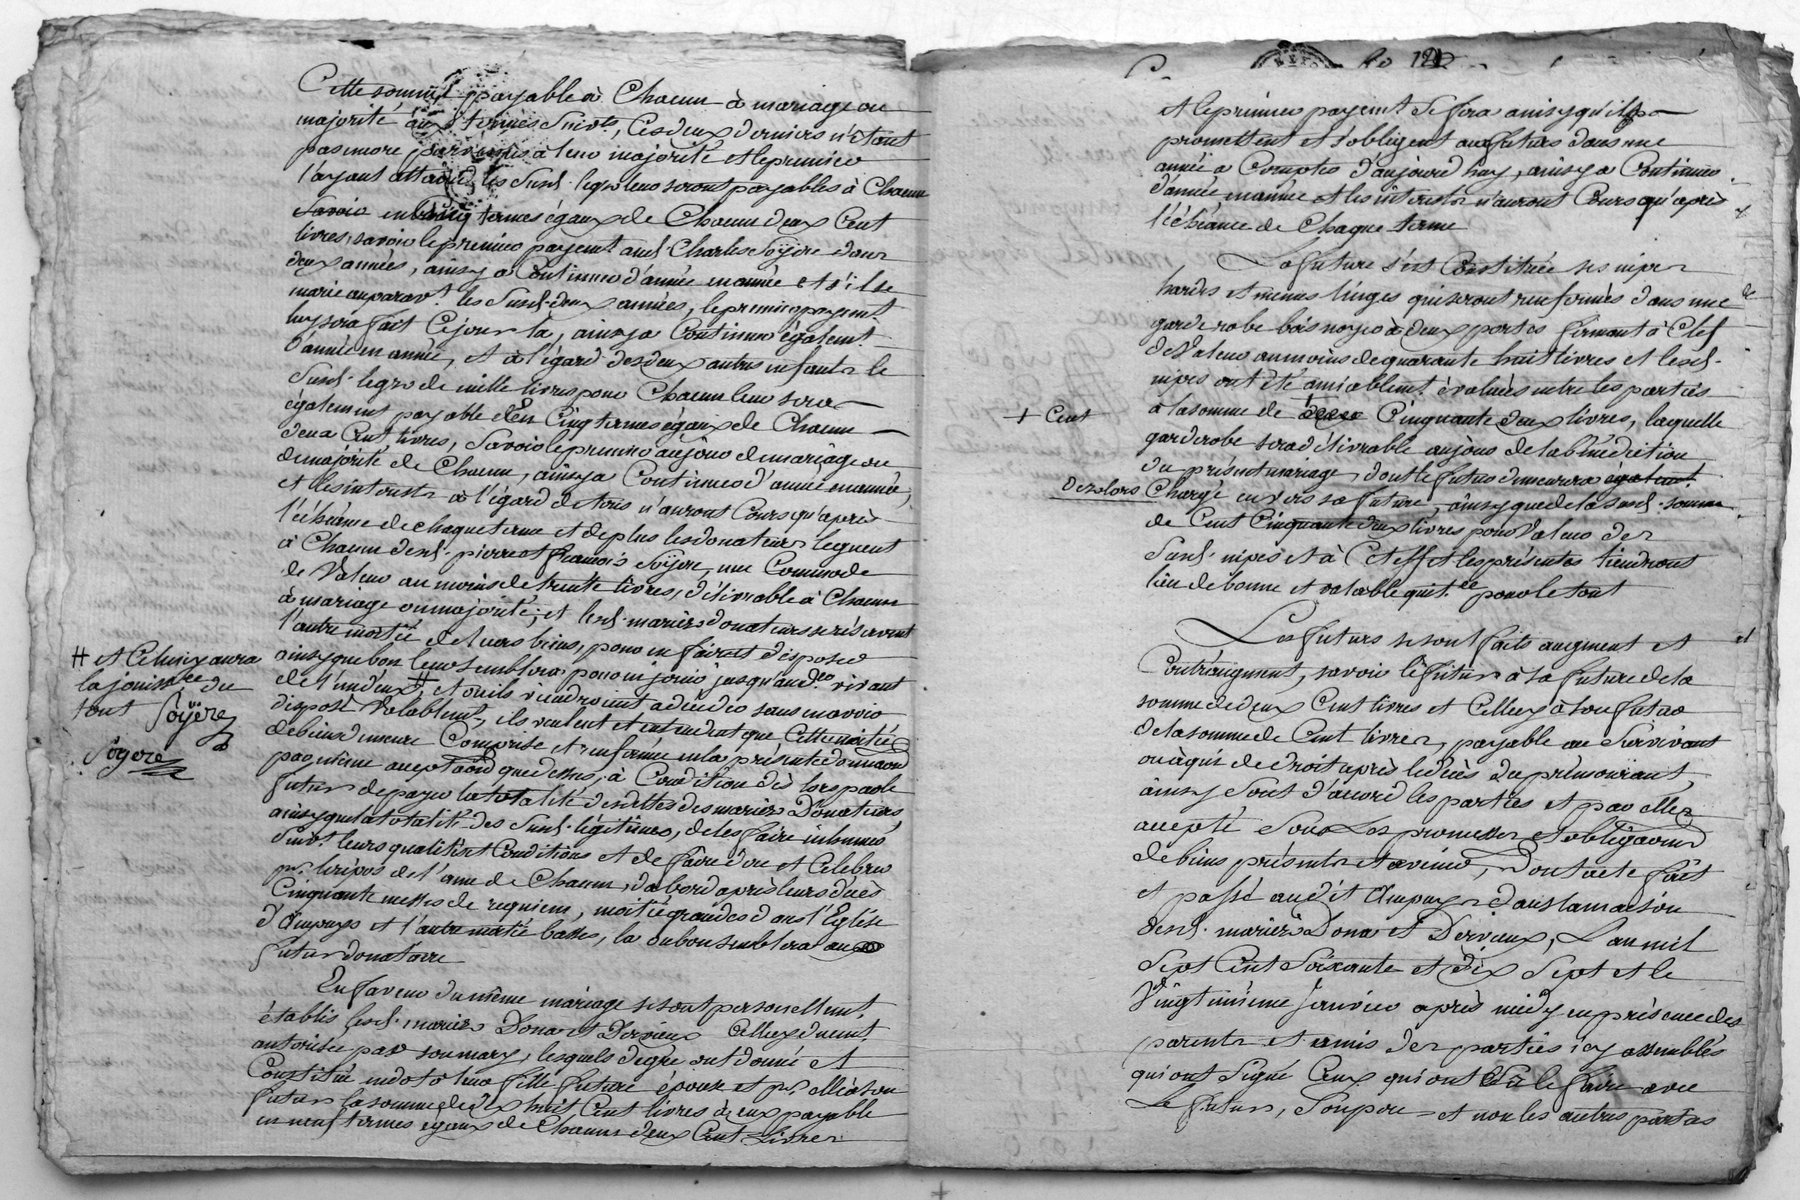 Cette somme payable à Chacun à mariage ou
majorité aux termes suivts, les deux derniers n'étant
pas encore parvenus à leur majorité et le premier
l'ayant atteint, les susd. legs leur seront payables à Chacun
Savoir en cinq termes égaux de Chacun deux Cent
livres, savoir le premier payemt aud. Charles Soÿere dans
deux années, ainsy a Continuer d'année en année et s'il se
marie auparavt. les susd. deux années, le premier payemt
luy sera fait Ce jour là, ainsy a Continuer égalemt
d'année en année, et à l'égard des deux autres enfants le
Susd. legs de mille livres pour Chacun leur sera
également payable En Cinq termes égaux de Chacun
deux Cent livres, Savoir le premier au jour de mariage ou
de majorité de Chacun, ainsy a Continuer d'année en année,
et les interests à l'égard de tous n'auront Cours qu'après
l'échéance de chaque terme et de plus les donateurs leguent
à Chacun desd. pierre et françois Soÿere, une Commode
de Valeur au moins de trente livres, délivrable à Chacun
à mariage ou majorité; et lesd. mariés donateurs se réservent
l'autre moitié de leurs biens, pour en faire et disposer
ainsy que bon leur semblera; pour en jouir jusqu'au der vivant
de l'un d'eux, # et ou ils viendroient a décéder sans en avoir
disposé Valablemt, ils veulent et entendent que Cette moitié
de biens demeure Comprise et renfermée en la présente donnaon
par même acceptaon que dessus, à Condition dès lors par le
futur de payer la totalité des dettes des mariés Donateurs,
ainsy que la totalité des Susd. légitimes, de les faire inhumer
Suivt. leurs qualités et Conditions et de faire dire et Celebrer
pr. le repos de l'ame de Chacun, d'abord après leurs décès
Cinquante messes de requiem, moitié grandes dans l'Eglise
d'Ampuys et l'autre moitié basses, la ou bon semblera au
futur donataire
En faveur du même mariage se sont personellemt
établis lesd. mariés Dona et Dervieux Celle cy duemt
autorisée par son mary, lesquels de gré ont donné et
Constitué en dot à leur fille future épouse et pr. elle à son
futur la somme de dix huit Cent livres à eux payable
en neuf termes égaux de Chacun deux Cent Livres
# et Celui cy aura
la jouissce du
tout Soÿere
Soyere
et le premier payemt se fera ainsy qu'ils
promettent et s'obligent aux futurs dans une
année a Compter d'aujourd'huy, ainsy a Continuer
d'année en année et les interests n'auront Cours qu'après
l'échéance de Chaque terme
La future s'est Constituée ses nipes
hardes et menus linges qui seront renfermés dans une
garderobe bois noyer à deux portes fermant à Clef
de Valeur au moins de quarante huit livres et lesd.
nipes ont été amiablemt évaluées entre les parties
à la somme de + Cinquante deux livres, laquelle
+ Cent
garderobe sera délivrable au jour de la bénédiction
du présent mariage, dont le futur demeurera égalemt
dez lors Chargé envers sa future, ainsy que de la susd. somme
de Cent Cinquante deux livres pour Valeur des
Susd. nipes et à Cet effet les présentes tiendront
lieu de bonne et valable quitce pour le tout
Les futurs se sont faits augment et
Contraugment, savoir le futur à sa future de la
somme de deux Cent livres et Celle cy à son futur
de la somme de Cent livres, payable au Survivant
ou à qui de droit après le décès du prémourant,
ainsy Sont d'accord les parties et par elles
accepté Sous Les promesses et obligaons
de biens présents et avenir, Dont acte fait
et passé audit Ampuys dans la maison
desd. mariés Dona et Dervieux, L'an mil
Sept Cent Soixante et dix Sept et le
Vingtunième Janvier après midy en présence des
parents et amis des parties icy assemblés
qui ont Signé Ceux qui ont Sû le faire avec
Le futur, Son pere et non les autres parties